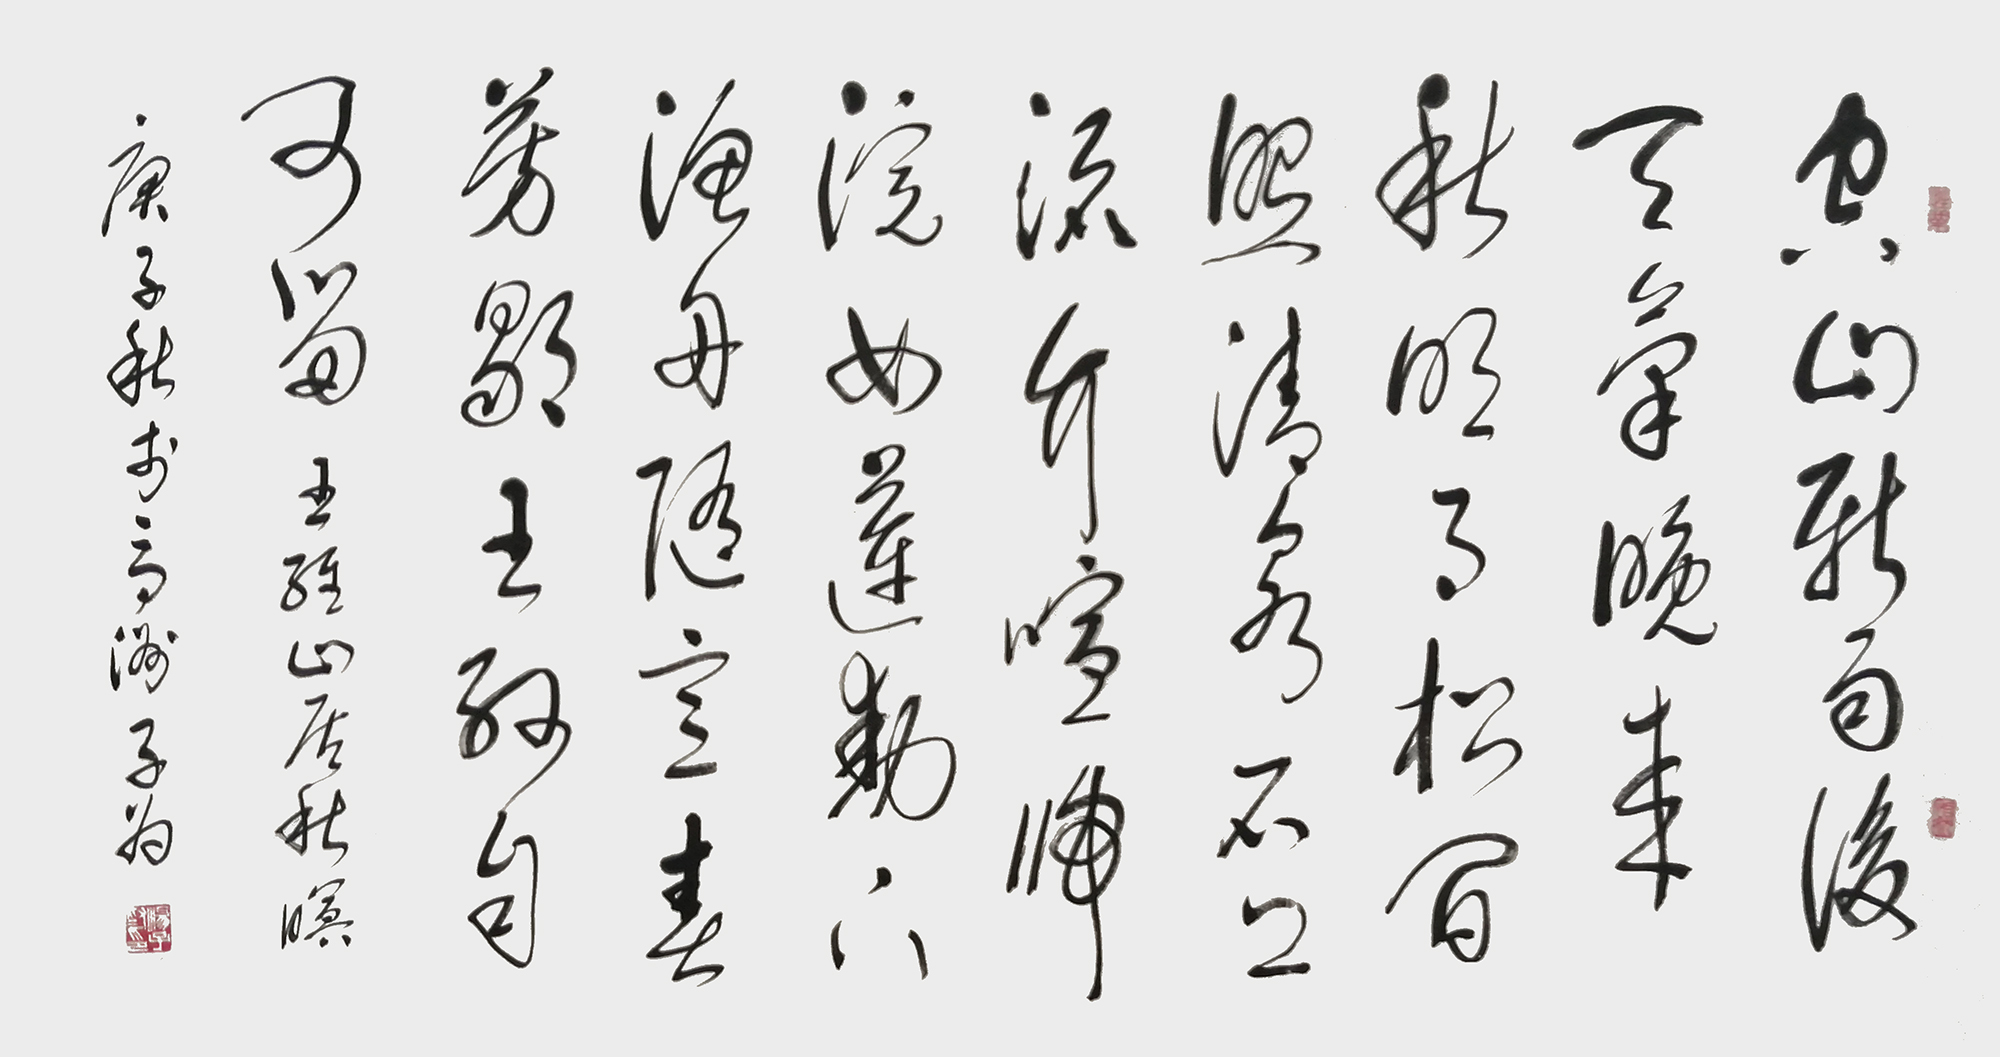 空山新雨後
天氣晚来
秋明月松間
照清泉石上
流竹喧歸
浣女蓮動下
漁舟隨意春
芳歇王孫自
可留 王維山居秋暝
庚子秋於高洲子為